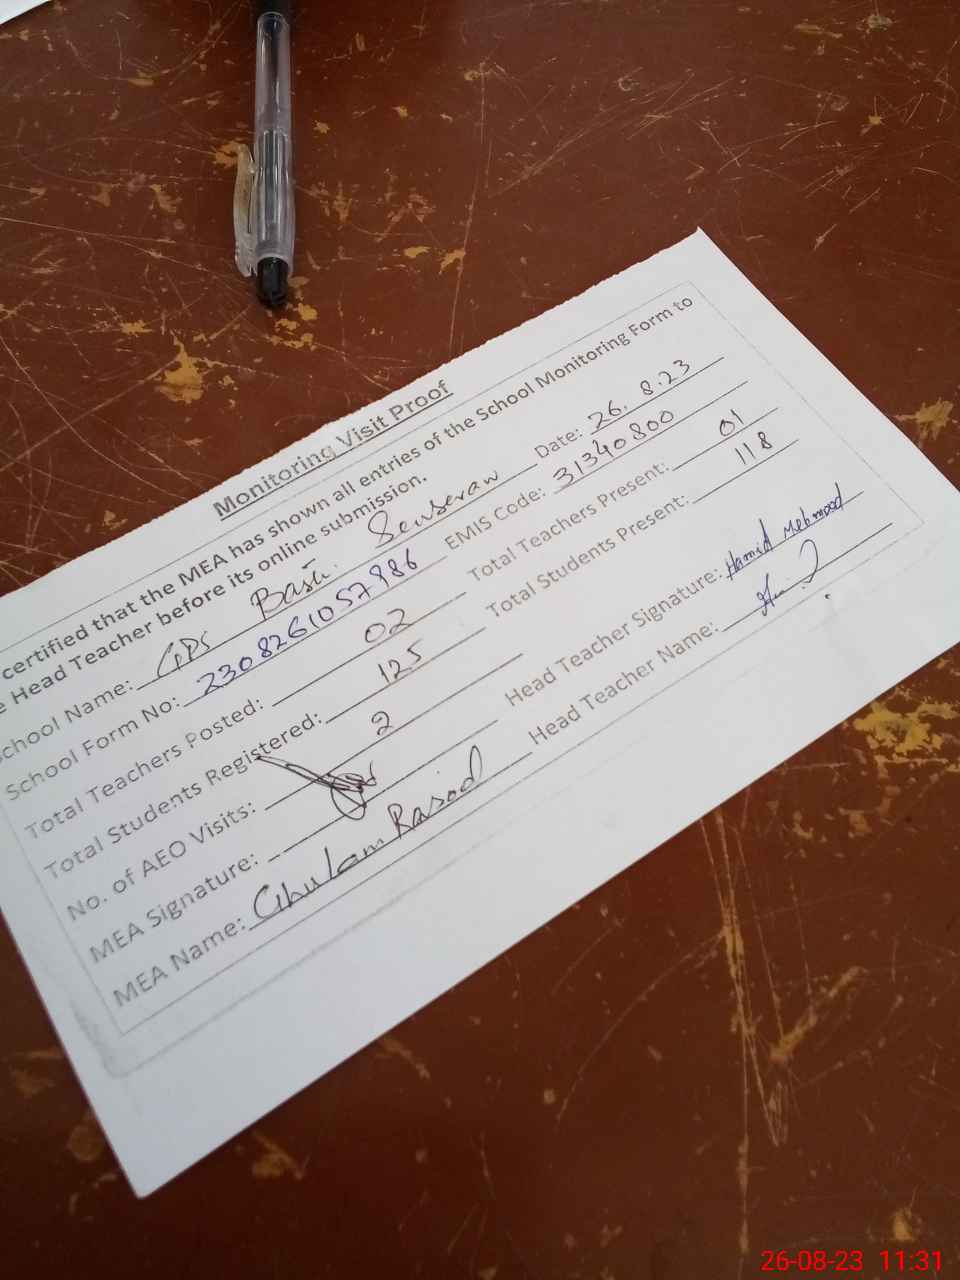 Monitoring Visit Proof
certified that the MEA has shown all entries of the School Monitoring Form to
Head Teacher before its online submission.
School Name: GPS Basti Date: 26.8.23
School Form No: 2308261057986 EMIS Code: 31340800
Total Teachers Posted: 02 Total Teachers Present: 01
Total Students Registered: 125 Total Students Present: 118
No. of AEO Visits: 2
MEA Signature: Head Teacher Signature: Hamid Mehmood
MEA Name: Ghulam Rasool Head Teacher Name:
26-08-23 11:31